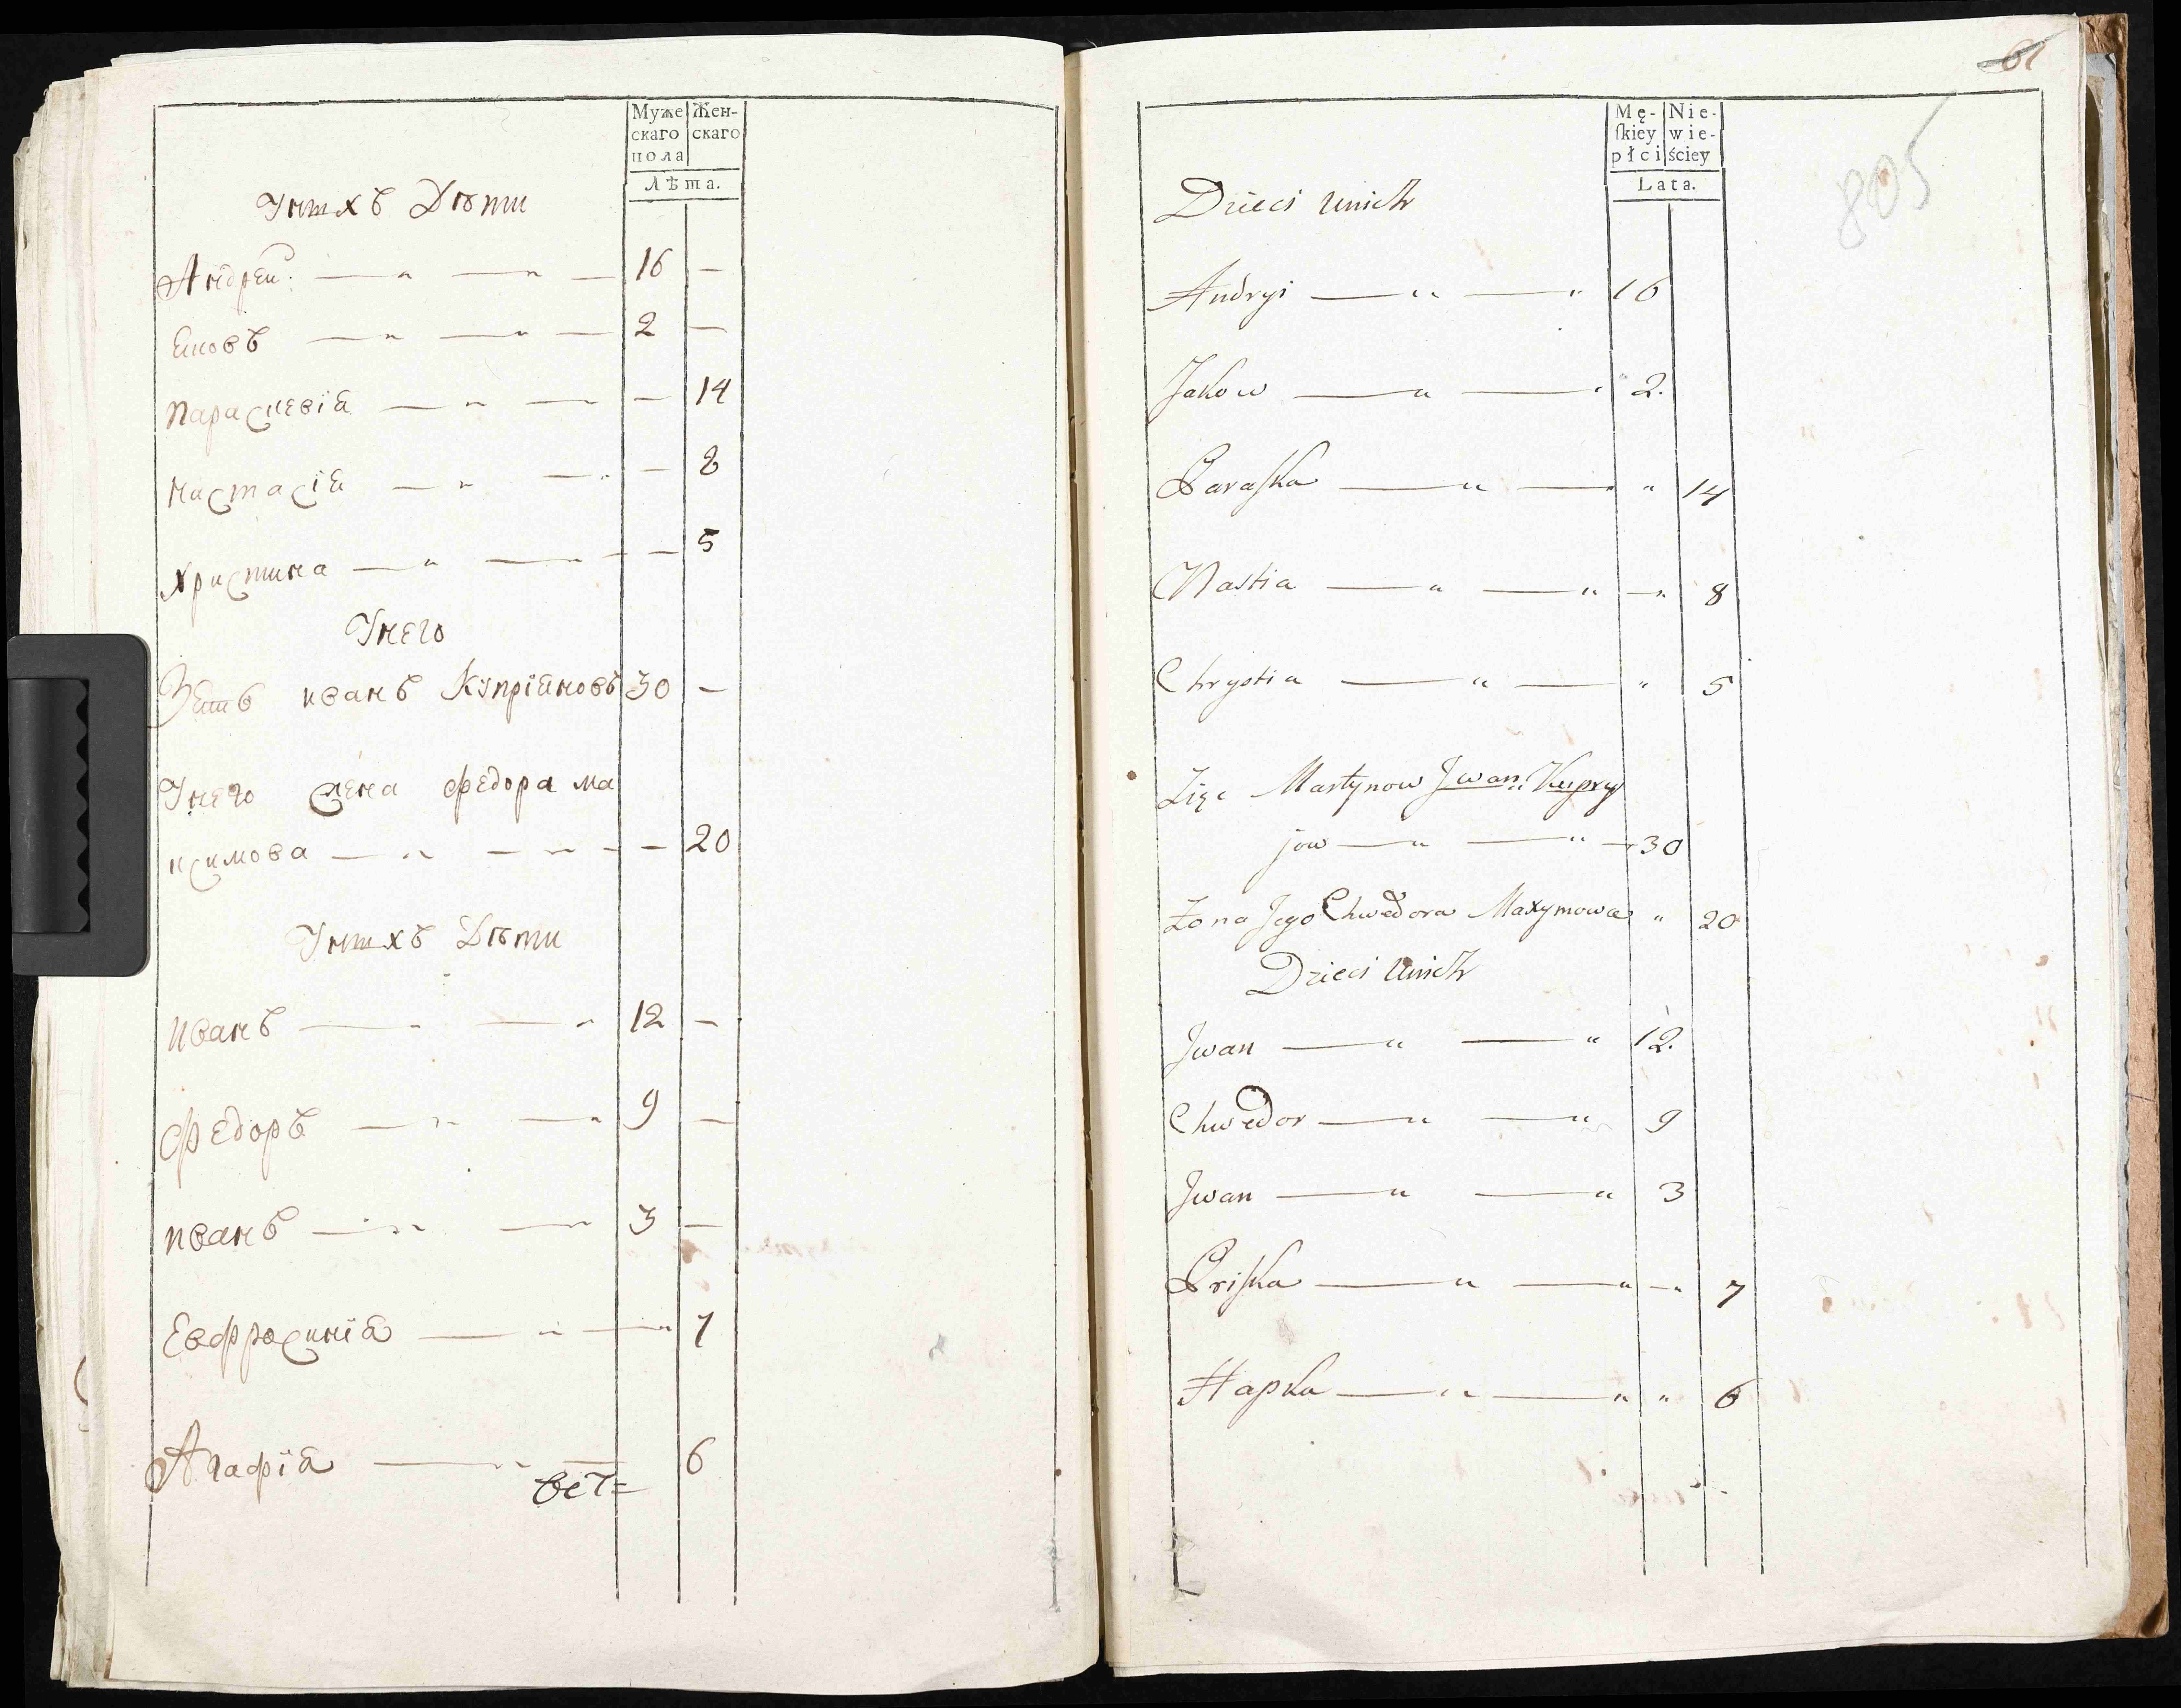 Муже Жен-
скаго скаго
пола
Лѣта.
У нихъ Дѣти
Андрей 16 —
Яковъ 2 —
Параскевїя — 14
Настасїя — 8
Христина — 5
У него
Зять иванъ Купрїяновъ 30 —
У него жена федора ма
ксимова — 20
У нихъ Дѣти
иванъ 12 —
федоръ 9 —
иванъ 3 —
Евфросинїя 7
Агафїя 6
61
805
Mę- Nie-
ſkiey wie-
płci ściey
Lata.
Dzieci unich
Andryi 16
Jakow 2.
Paraſka 14
Nastia 8
Chrystia 5
Zięc Martynow Jwan Kupry
jow 30
Żona Jego Chwedora Maxymowa 20
Dzieci Unich
Jwan 12.
Chwedor 9
Jwan 3
Priſka 7
Hapka 6